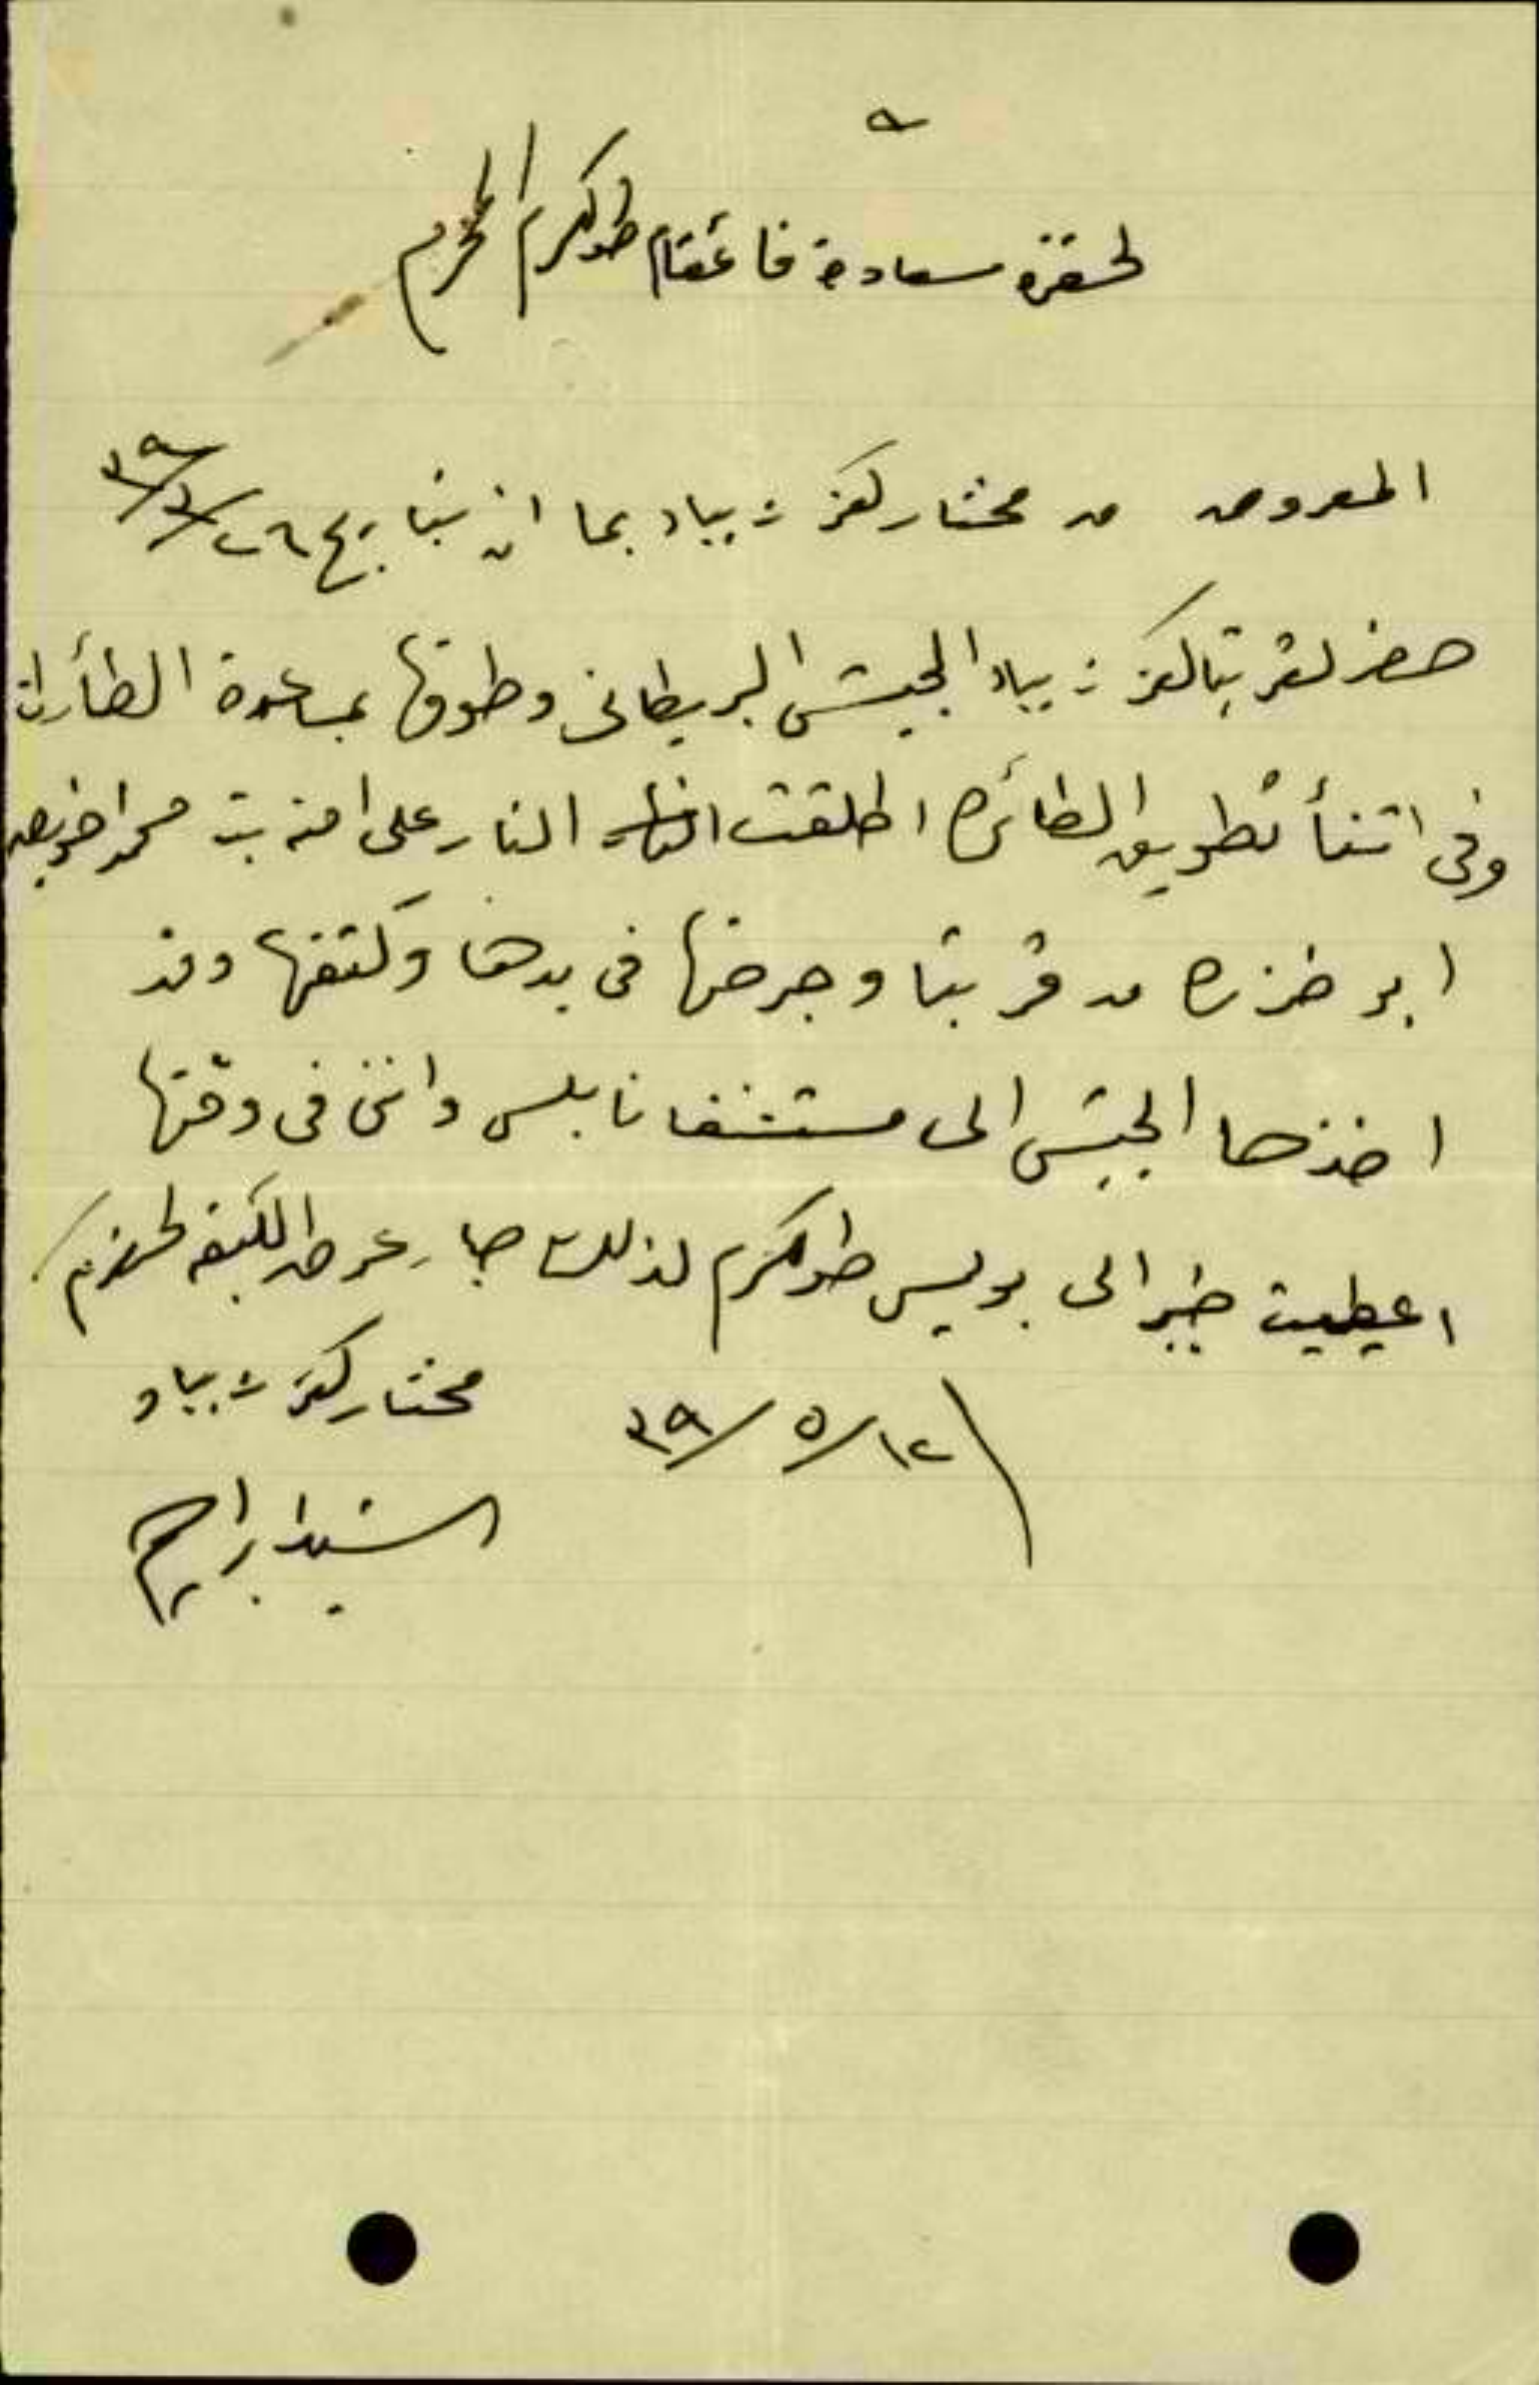 لحضرة سعادة قائمقام طولكرم المحترم
المعروض من مختار كفر زيباد بما ان بتاريخ ٢٦/٣/٣٩
حضر لقريتنا كفر زيباد الجيش البريطانى وطوقها بمساعدة الطأرات
وفى اثنأ تطويق الطائره اطلقت النار على امنه بنت محمد
ابو خزره من قريتنا وجرحتها فى يدها وكتفها وقد
اخذها الجيش الى مستشفا نابلس واننى فى وقتها
اعطيت خبر الى بوليس طولكرم لذلك صار عرض الكيفه لحضرتكم
١٢/٥/٣٩ مختار كفر زيباد
ابراهيم